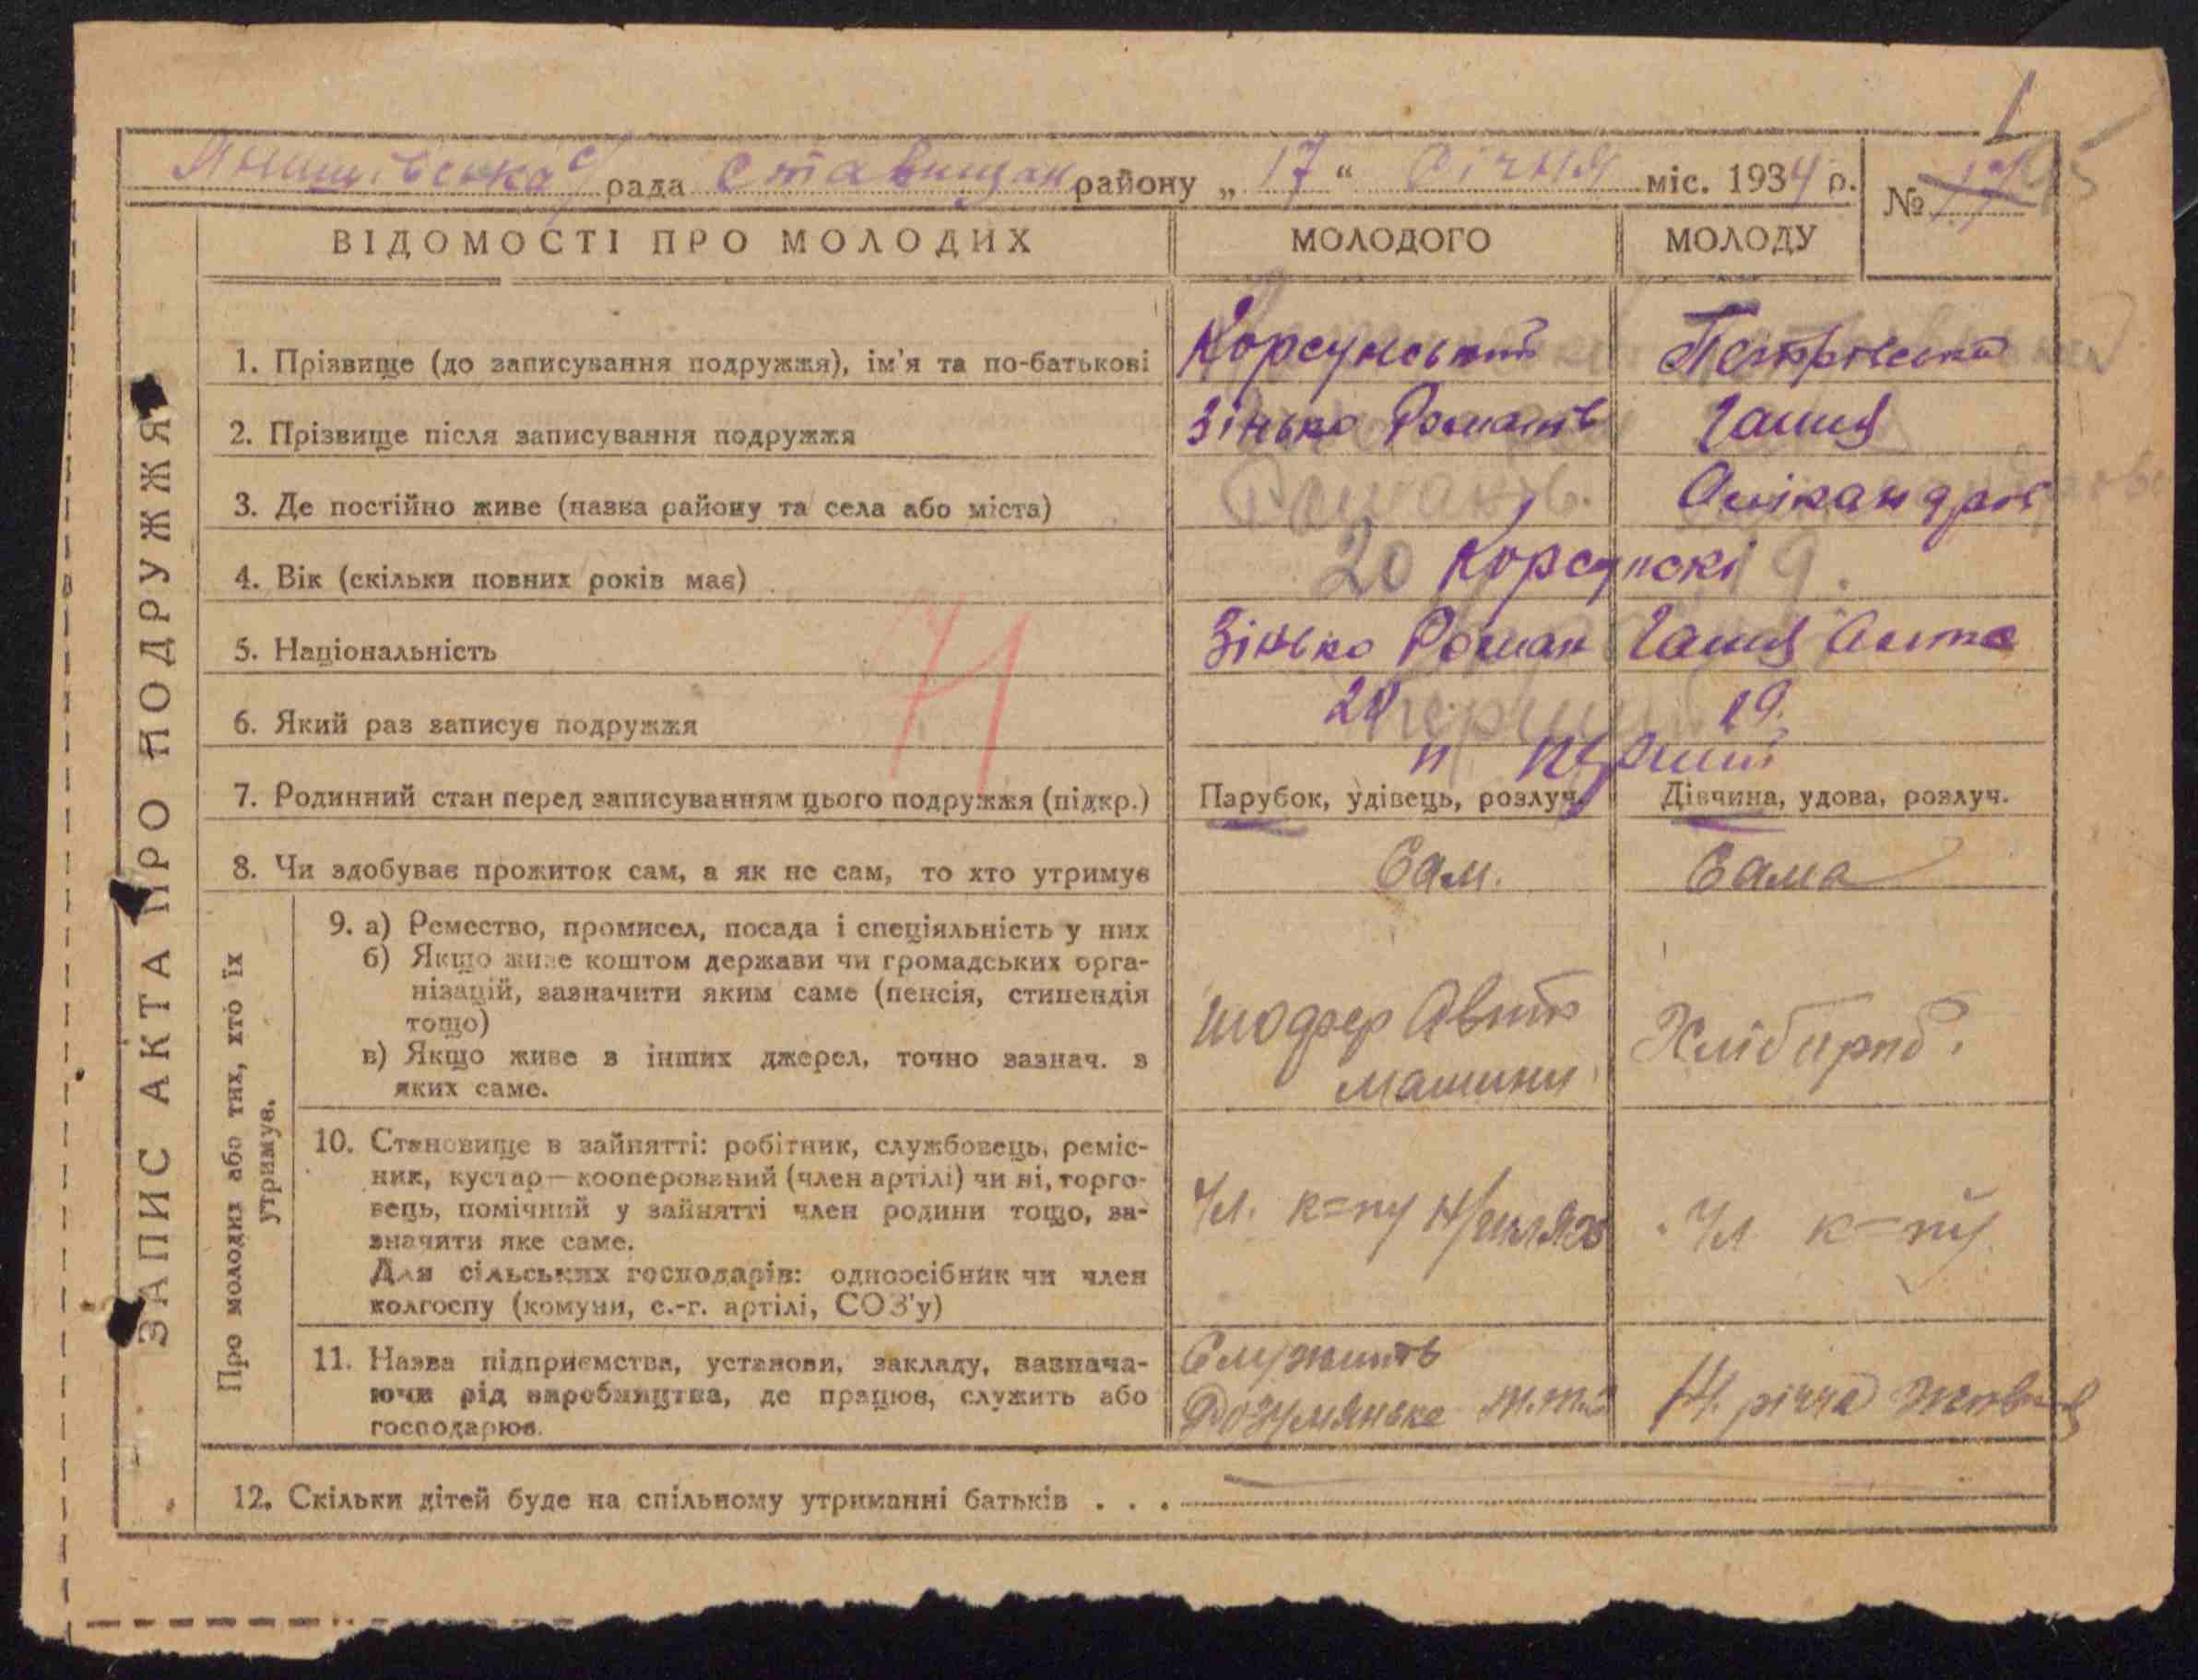 1
Янишівська с/рада Ставищан району „17“ Січня міс. 1934 р.
№ 95
ВІДОМОСТІ ПРО МОЛОДИХ
МОЛОДОГО
МОЛОДУ
ЗАПИС АКТА ПРО ПОДРУЖЖЯ
1. Прізвище (до записування подружжя), ім'я та по-батькові
Корсунський
Петрівська
2. Прізвище після записування подружжя
Зінько Романів
Ганна
3. Де постійно живе (назва району та села або міста)
Романів.
4. Вік (скільки повних років має)
20 Корсунскі 19.
5. Національність
Зінько Роман
Ганна
71
6. Який раз записує подружжя
20
19.
перший
7. Родинний стан перед записуванням цього подружжя (підкр.)
Парубок, удівець, розлуч.
Дівчина, удова, розлуч.
8. Чи здобуває прожиток сам, а як не сам, то хто утримує
Сам.
Сама
Про молодих або тих, хто їх утримує.
9. а) Ремество, промисел, посада і спеціяльність у них
б) Якщо живе коштом держави чи громадських орга-
нізацій, зазначити яким саме (пенсія, стипендія
тощо)
в) Якщо живе з інших джерел, точно зазнач. з
яких саме.
шофер Авто
машини
Хлібороб.
10. Становище в зайнятті: робітник, службовець, реміс-
ник, кустар—кооперований (член артілі) чи ні, торго-
вець, помічний у зайнятті член родини тощо, за-
значити яке саме.
Для сільських господарів: одноосібник чи член
колгоспу (комуни, с.-г. артілі, СОЗ'у)
Чл. к=пу Н/шлях
Чл к=пу
11. Назва підприємства, установи, закладу, зазнача-
ючи рід виробництва, де працює, служить або
господарює.
Служить
Розумянське
річча Жовтня
12. Скільки дітей буде на спільному утриманні батьків . . .